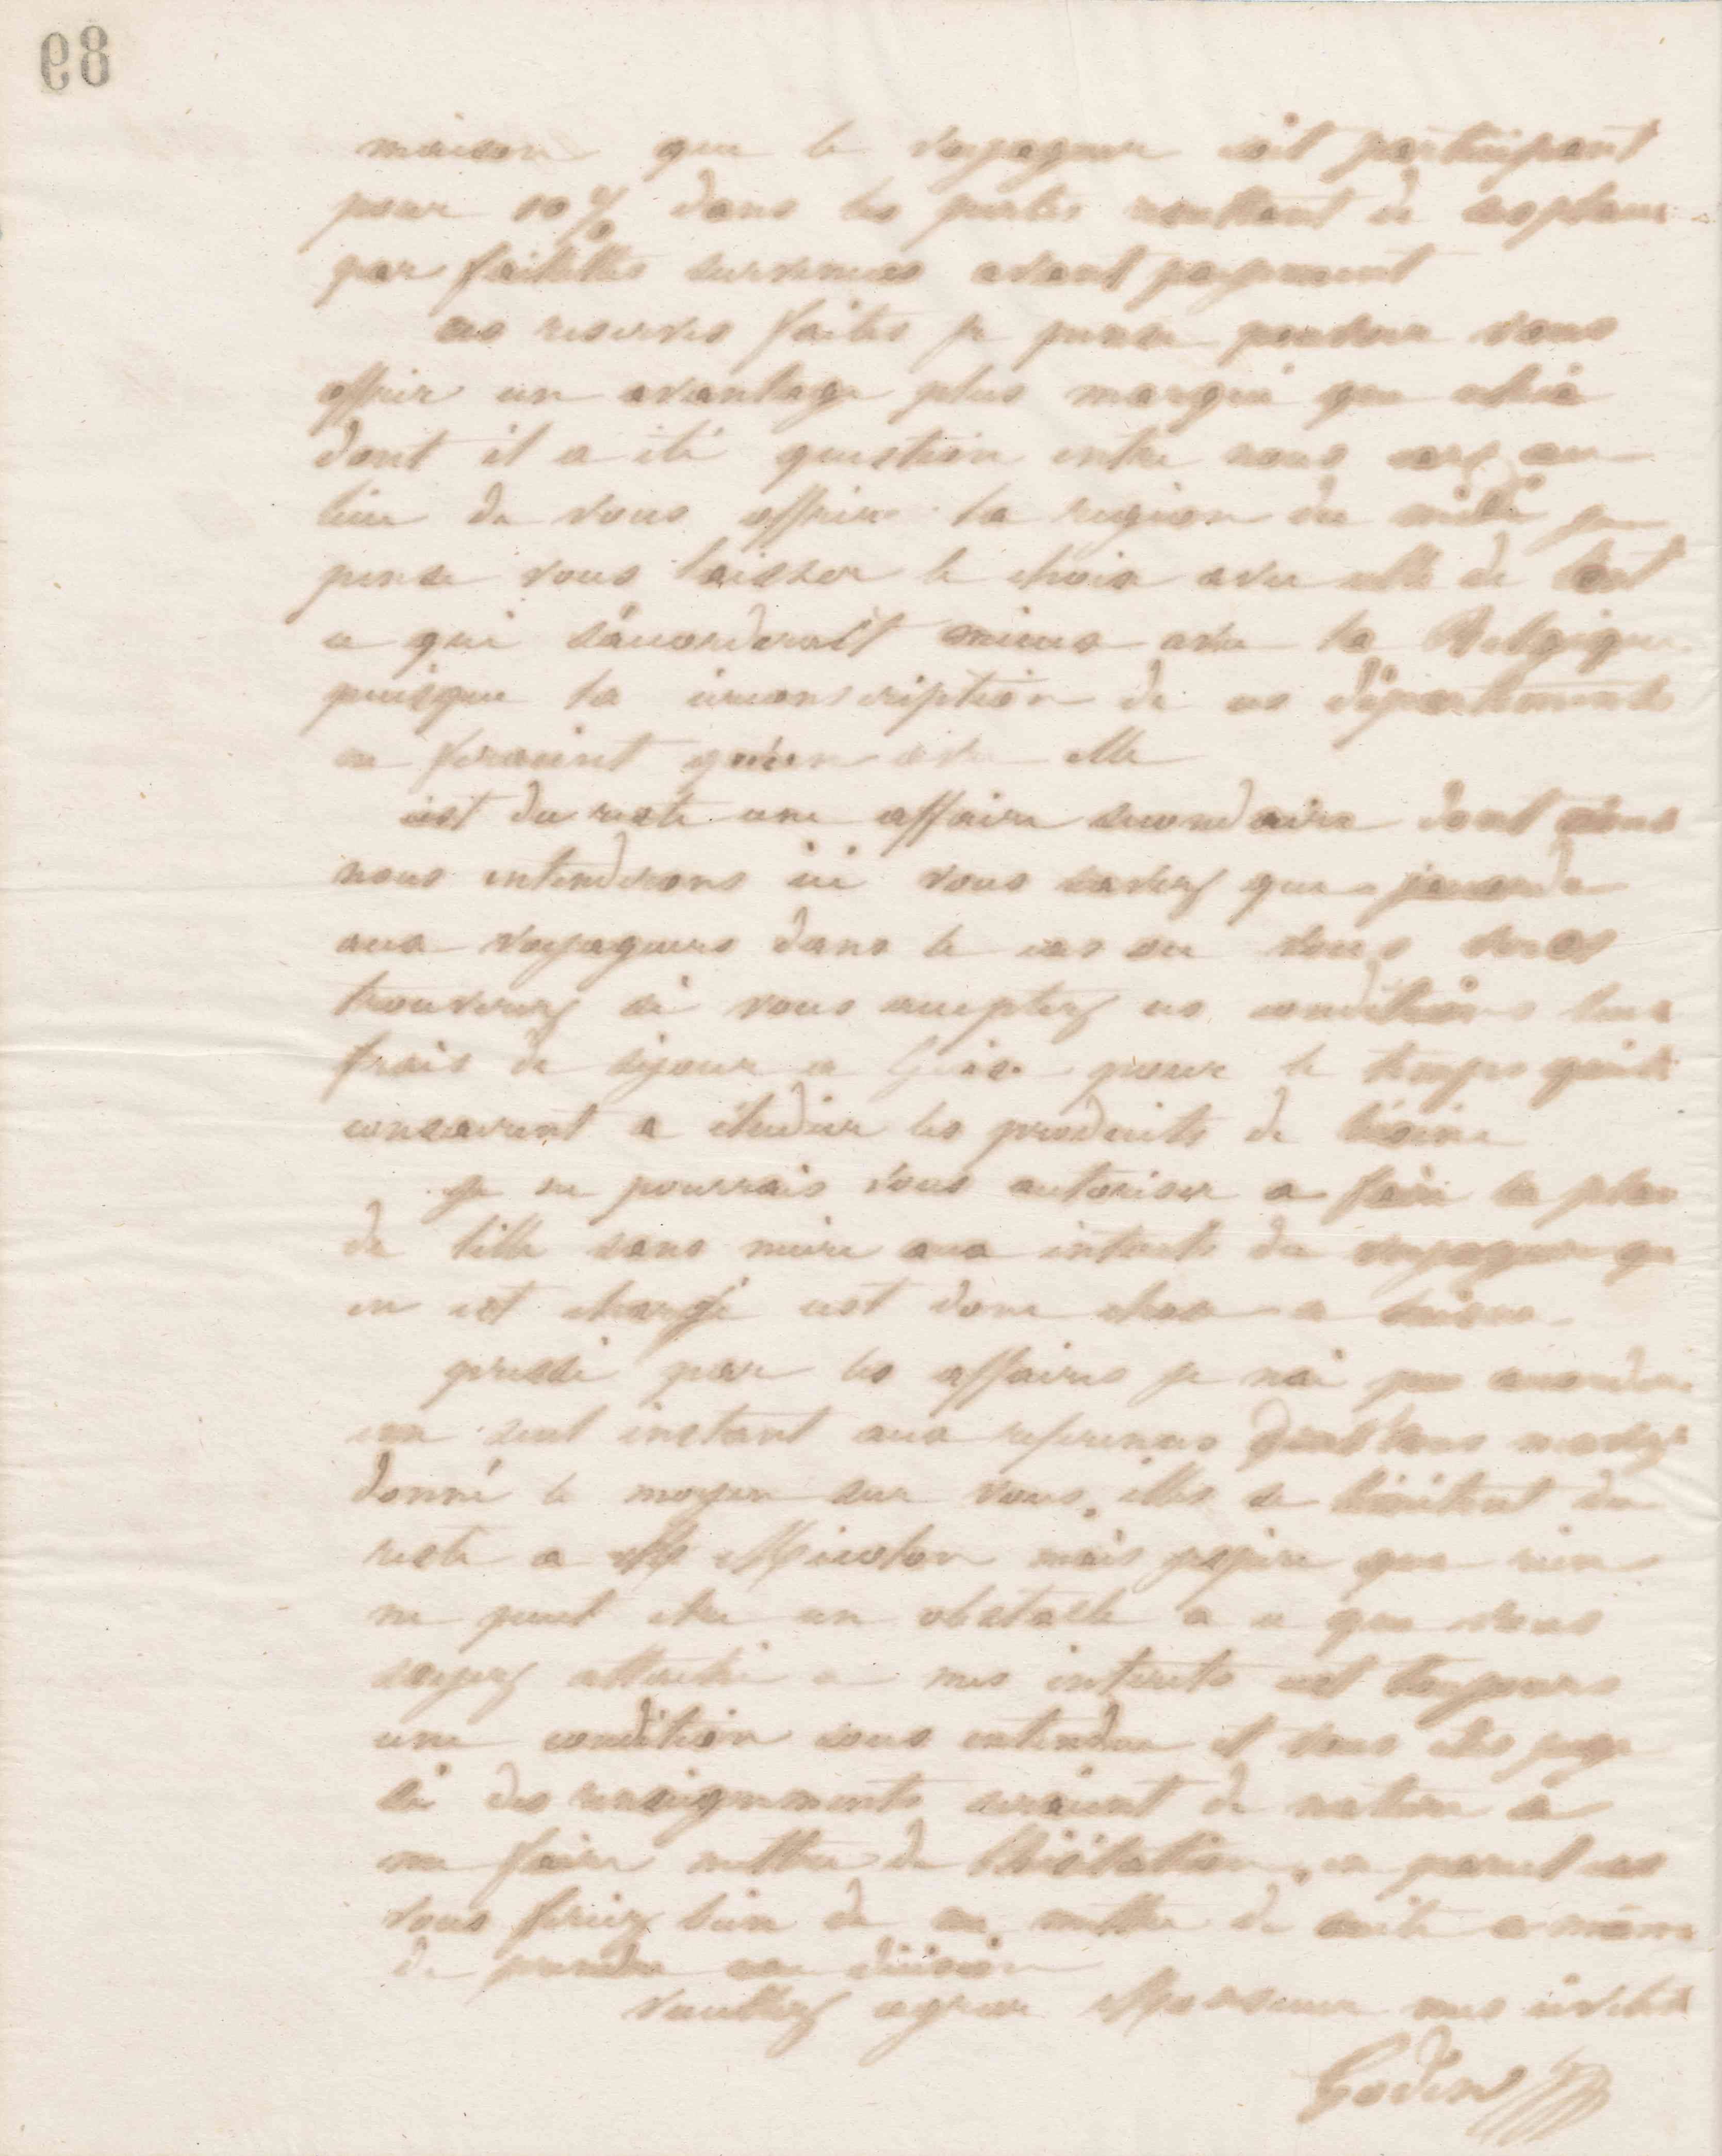 89
maison que le voyageur soit participant
pour 10 % dans les pertes résultant de ses placem
par faillites survenues avant payement
ces reserves faites je pense pouvoir vous
offrir un avantage plus marqué que celui
dont il a été question entre nous car au
lieu de vous offrir la region du midi je
pense vous laisser le choix avec celle de lest
ce qui s'accorderait mieux avec la Belgique
puisque la circonscription de ces départements
ne feraient qu'un avec elle
cest du reste une affaire secondaire dont nous
nous entenderons ici vous savez que jaccorde
aux voyageurs dans le cas ou vous vous
trouverez si vous acceptez ces conditions leur
frais de séjour a Guise pour le temps quils
consacrent a étudier les produits de lusine
je ne pourrais vous autoriser a faire la place
de lille sans nuire aux intérêts du voyageur qui
en est chargé cest donc chose a laisser
pressé par les affaires je nai pas accordé
un seul instant aux references dont vous mavez
donné le moyen sur vous, elles se limitent du
reste a Mr mais jespère que rien
ne peut etre un obstacle a ce que vous
soyez attaché a mes interets cest toujours
une condition sous entendue et vous etes juge
si des renseignements seraient de nature a
me faire mettre de lhésitation, en pareil cas
vous feriez bien de me mettre de suite a même
de prendre une décision
veuillez agréer Monsieur mes civilités
Godin